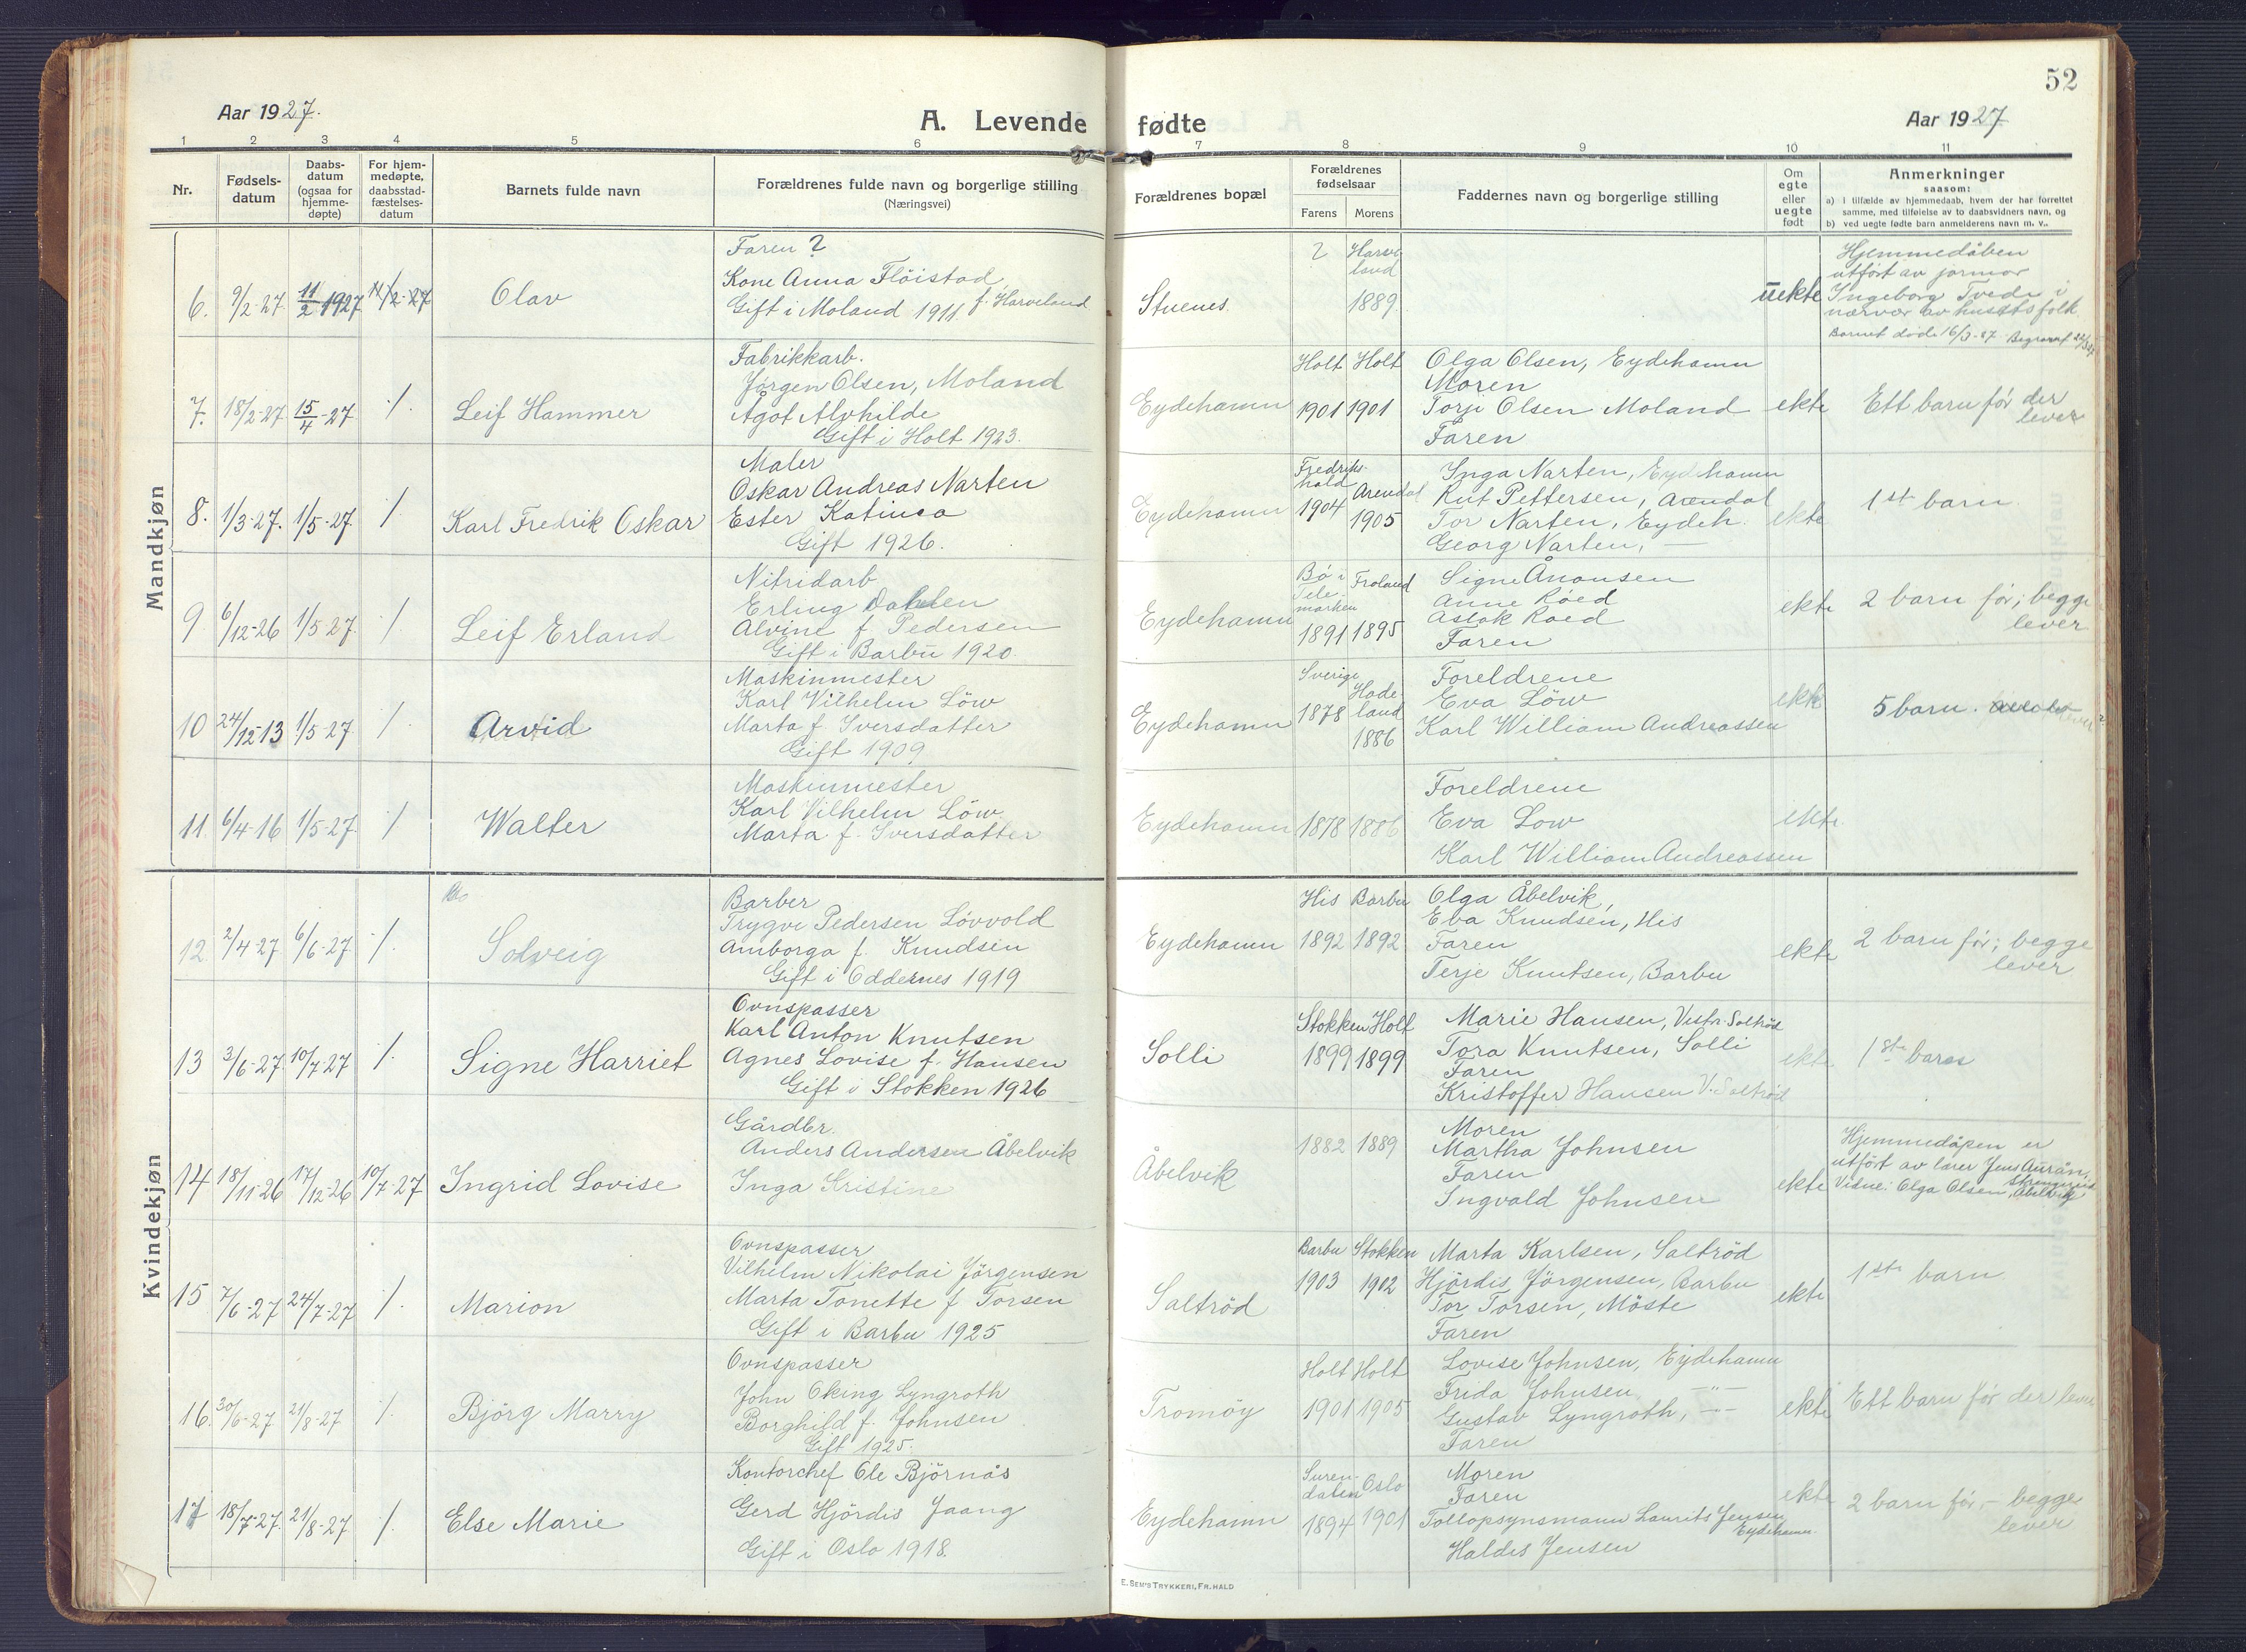 52
Aar 1927.
A. Levende fødte
Aar 1927
1 2 3 4 5 6 7 8 9 10 11
Nr.
Fødsels-
datum
Daabs-
datum
(ogsaa for
hjemme-
døpte)
For hjem-
medøpte,
daabsstad-
fæstelses-
datum
Barnets fulde navn
Forældrenes fulde navn og borgerlige stilling
(Næringsvei)
Forældrenes bopæl
Forældrenes
fødselsaar
Farens Morens
Faddernes navn og borgerlige stilling
Om
egte
eller
uegte
født
Anmerkninger
saasom:
a) i tilfælde av hjemmedaab, hvem der har forrettet
samme, med tilføielse av to daabsvidners navn, og
b) ved uegte fødte barn anmelderens navn m. v..
Mandkjøn
6. 9/2-27. 11/2 1927 11/2-27
Olav
Faren ?
Kone Anna Flöistad
f. Harveland
Gift i Moland 1911.
Stuenes.
?
1889.
uekte
Hjemmedåben
utfört av jormor
Ingeborg Tvede i
nærvær av husets folk
Barnet döde 16/3-27
7. 18/2-27 15/4-27 ./.
Leif Hammer
Fabrikkarb.
Jørgen Olsen, Moland
Ågot Alvhilde
Gift i Holt 1923.
Eydehamn
Holt Holt
1901 1901
Olga Olsen, Eydehamn
Moren
Torje Olsen Moland
Faren
ekte
Ett barn før der
lever
8. 1/3-27. 1/5-27. ./.
Karl Fredrik Oskar
Maler
Oskar Andreas Narten
Ester Katinca
Gift 1926.
Eydehamn
Fredriks-
hald
1904
Arendal
1905
Inga Narten, Eydehamn
Rut Pettersen, Arendal
Tor Narten, Eydeh.
Georg Narten, —
ekte
1ste barn
9 6/12-26 1/5-27. ./.
Leif Erland
Nitridarb
Erling Dahlen
Alvine f. Pedersen
Gift i Barbu 1920.
Eydehamn
Bö i
Tele-
marken
1891
Froland
1895
Signe Ånonsen
Anne Röed
Aslak Roed
Faren
ekte
2 barn før; begge
lever
10 24/12-13 1/5-27. ./.
Arvid
Maskinmester
Karl Vilhelm Löw
Marta f. Iversdatter
Gift 1909.
Eydehamn
Sverige
1878
Hade-
land
1886
Foreldrene
Eva Löw
Karl William Andreassen
ekte
5 barn.
11. 6/4-16 1/5-27. ./.
Walter
Maskinmester
Karl Vilhelm Löw.
Marta f. Iversdatter
Eydehamn
1878 1886
Foreldrene
Eva Low
Karl William Andreassen
ekte
Kvindekjøn
12 2/4-27. 6/6-27. ./.
Solveig
Barber
Trygve Pedersen Lövvold
Amborga f. Knudsen
Gift i Oddernes 1919
Eydehamn
His Barbu
1892 1892
Olga Åbelvik,
Eva Knudsen, His
Faren
Terje Knutsen, Barbu
ekte
2 barn før; begge
lever
13 3/6-27. 10/7-27 ./.
Signe Harriet
Ovnspasser
Karl Anton Knutsen
Agnes Lovise f. Hansen
Gift i Stokken 1926
Solli
Stokken Holt
1899 1899
Marie Hansen, Vestr. Saltröd
Tora Knutsen, Solli
Faren
Kristoffer Hansen V. Saltröd
ekte
1ste barn
14 18/11-26 17/12-26 10/7-27
Ingrid Lovise
Gårdbr.
Anders Andersen Åbelvik
Inga Kristine
Åbelvik
1882 1889
Moren
Martha Johnsen
Faren
Ingvald Johnsen
ekte
Hjemmedåpen er
utfört av lærer Jens Aurån,
Vidne: Olga Olsen, Åbelvik
15 7/6-27 24/7-27 ./.
Marion
Ovnspasser
Vilhelm Nikolai Jörgensen
Marta Tonette f Torsen
Gift i Barbu 1925
Saltröd
Barbu Stokken
1903 1902
Marta Karlsen, Saltröd
Hjördis Jörgensen, Barbu
Tor Torsen, Möste
Faren
ekte
1ste barn
16. 30/6-27. 21/8-27 ./.
Björg Marry
Ovnspasser
John Oking Lyngroth
Borghild f. Johnsen
Gift 1925.
Tromöy
Holt Holt
1901 1905
Lovise Johnsen, Eydehamn
Frida Johnsen —"—
Gustav Lyngroth, —"—
Faren
ekte
Ett barn før der lever
17 18/7-27. 21/8-27 ./.
Else Marie
Kontorchef Ole Björnås
Gerd Hjördis Jaang
Gift i Oslo 1918.
Eydehamn
Suren-
dalen
1894
Oslo
1901
Moren
Faren
Tollopsynsmann Laurits Jensen
Eydehamn.
Haldis Jensen
ekte
2 barn før, - begge
lever
E. SEM'S TRYKKERI, FR.HALD